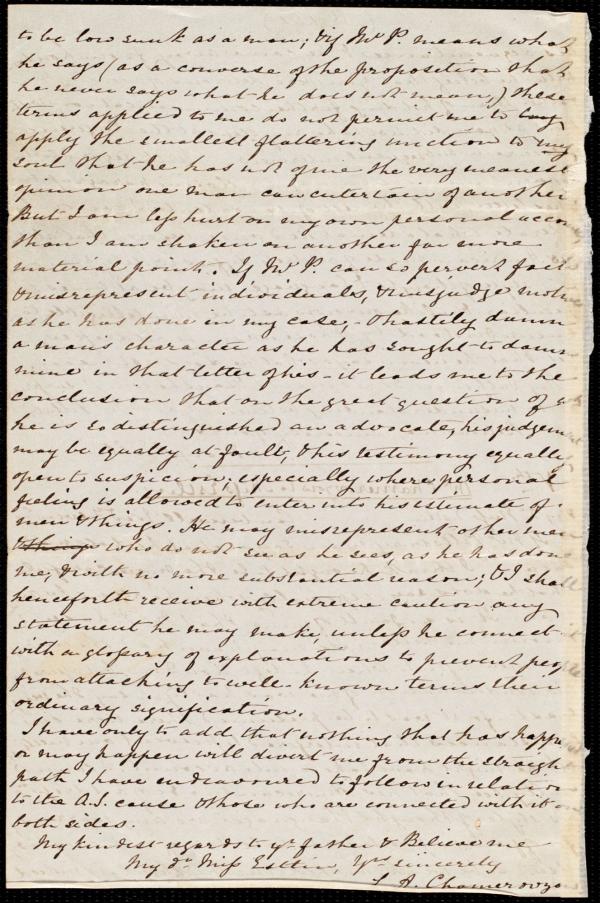 to be low sunk as a man; & if Mr P. means what
he says (as a converse of the proposition that
he never says what he does not mean,) these
terms applied to me do not permit me to lay
apply the smallest flattering unction to my
soul that he has not of me the very meanest
opinion one man can entertain of another
But I am less hurt on my own personal acco
than I am shaken on another far more
material point. If Mr P. can so pervert fact
& misrepresent individuals, & misjudge motive
as he has done in my case, - & hastily damn
a man's character as he has sought to damn
mine in that letter of his - it leads me to the
conclusion that on the great question of wh
he is so distinguished an advocate, his judgem
may be equally at fault, & his testimony equally
open to suspicion; especially where personal
feeling is allowed to enter into his estimate of
men & things. He may misrepresent other men
& things who do not see as he sees, as he has done
me, & with no more substantial reason; & I shall
henceforth receive with extreme caution any
statement he may make, unless he connect
with a glossary of explanations to prevent people
from attaching to well-known terms their
ordinary signification.
I have only to add that nothing that has happe
or may happen will divert me from the straigh
path I have endeavoured to follow in relation
to the A.S. cause & those who are connected with it on
both sides.
My kindest regards to yr father & Believe me
My dr Miss Estlin, Yrs sincerely
L. A. Chamerovzow